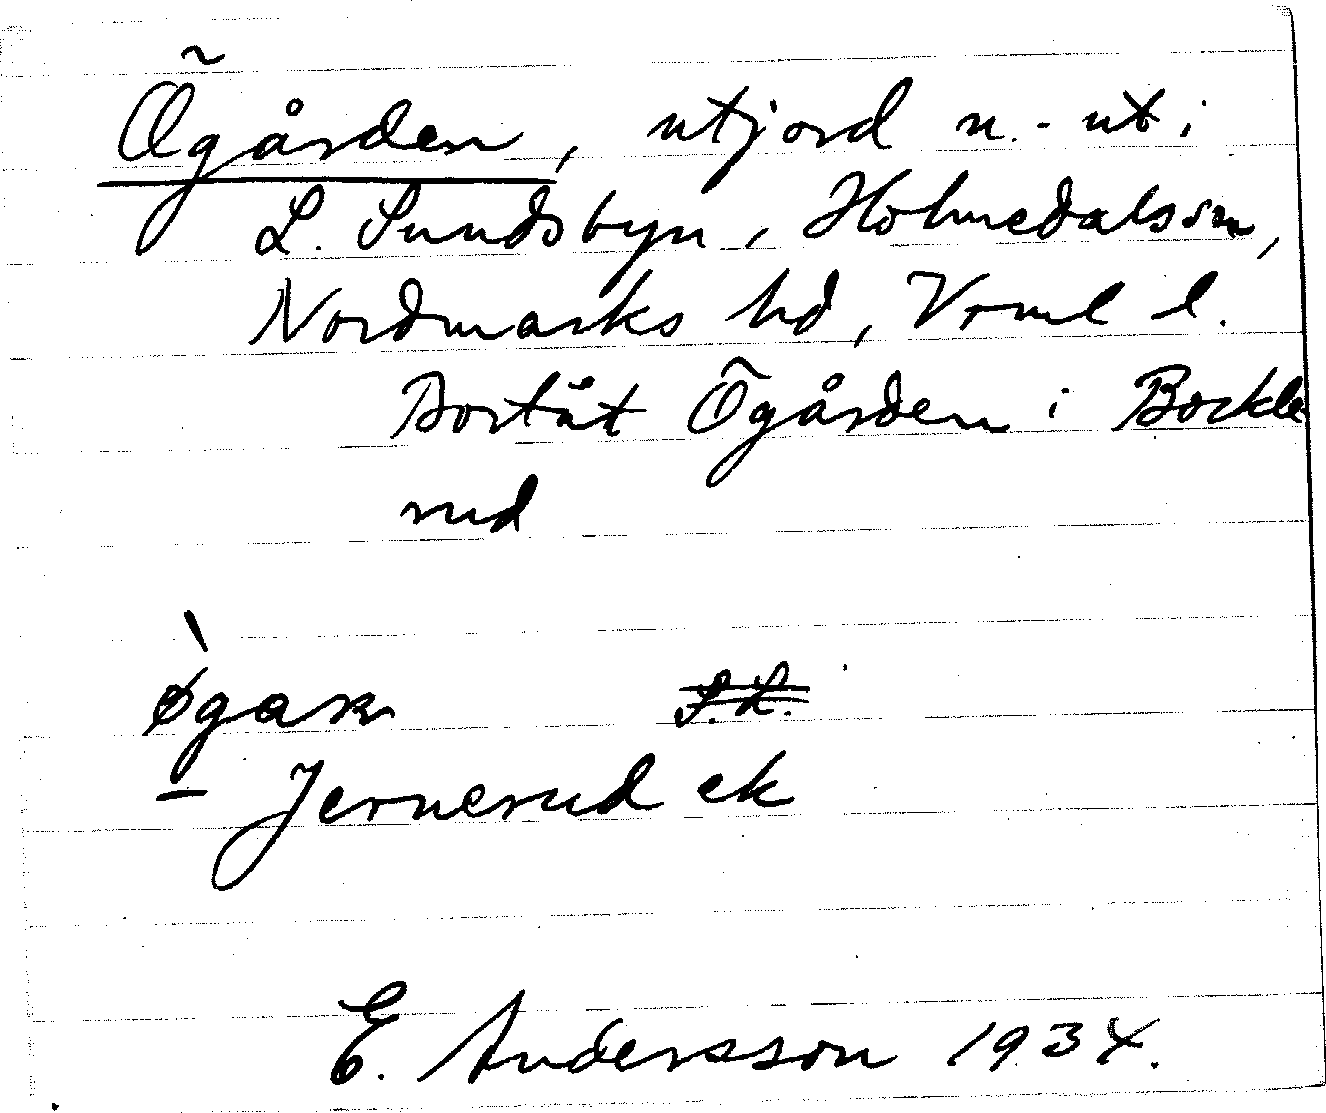 Ögården, utjord n.-ut i
L. Sundsbyn, Holmedals sn,
Nordmarks hd, Vrml l.
Bortåt Ögården i Bockle
rud
øgaɽn S.L.
– Jernerud ek
E. Andersson 1934.